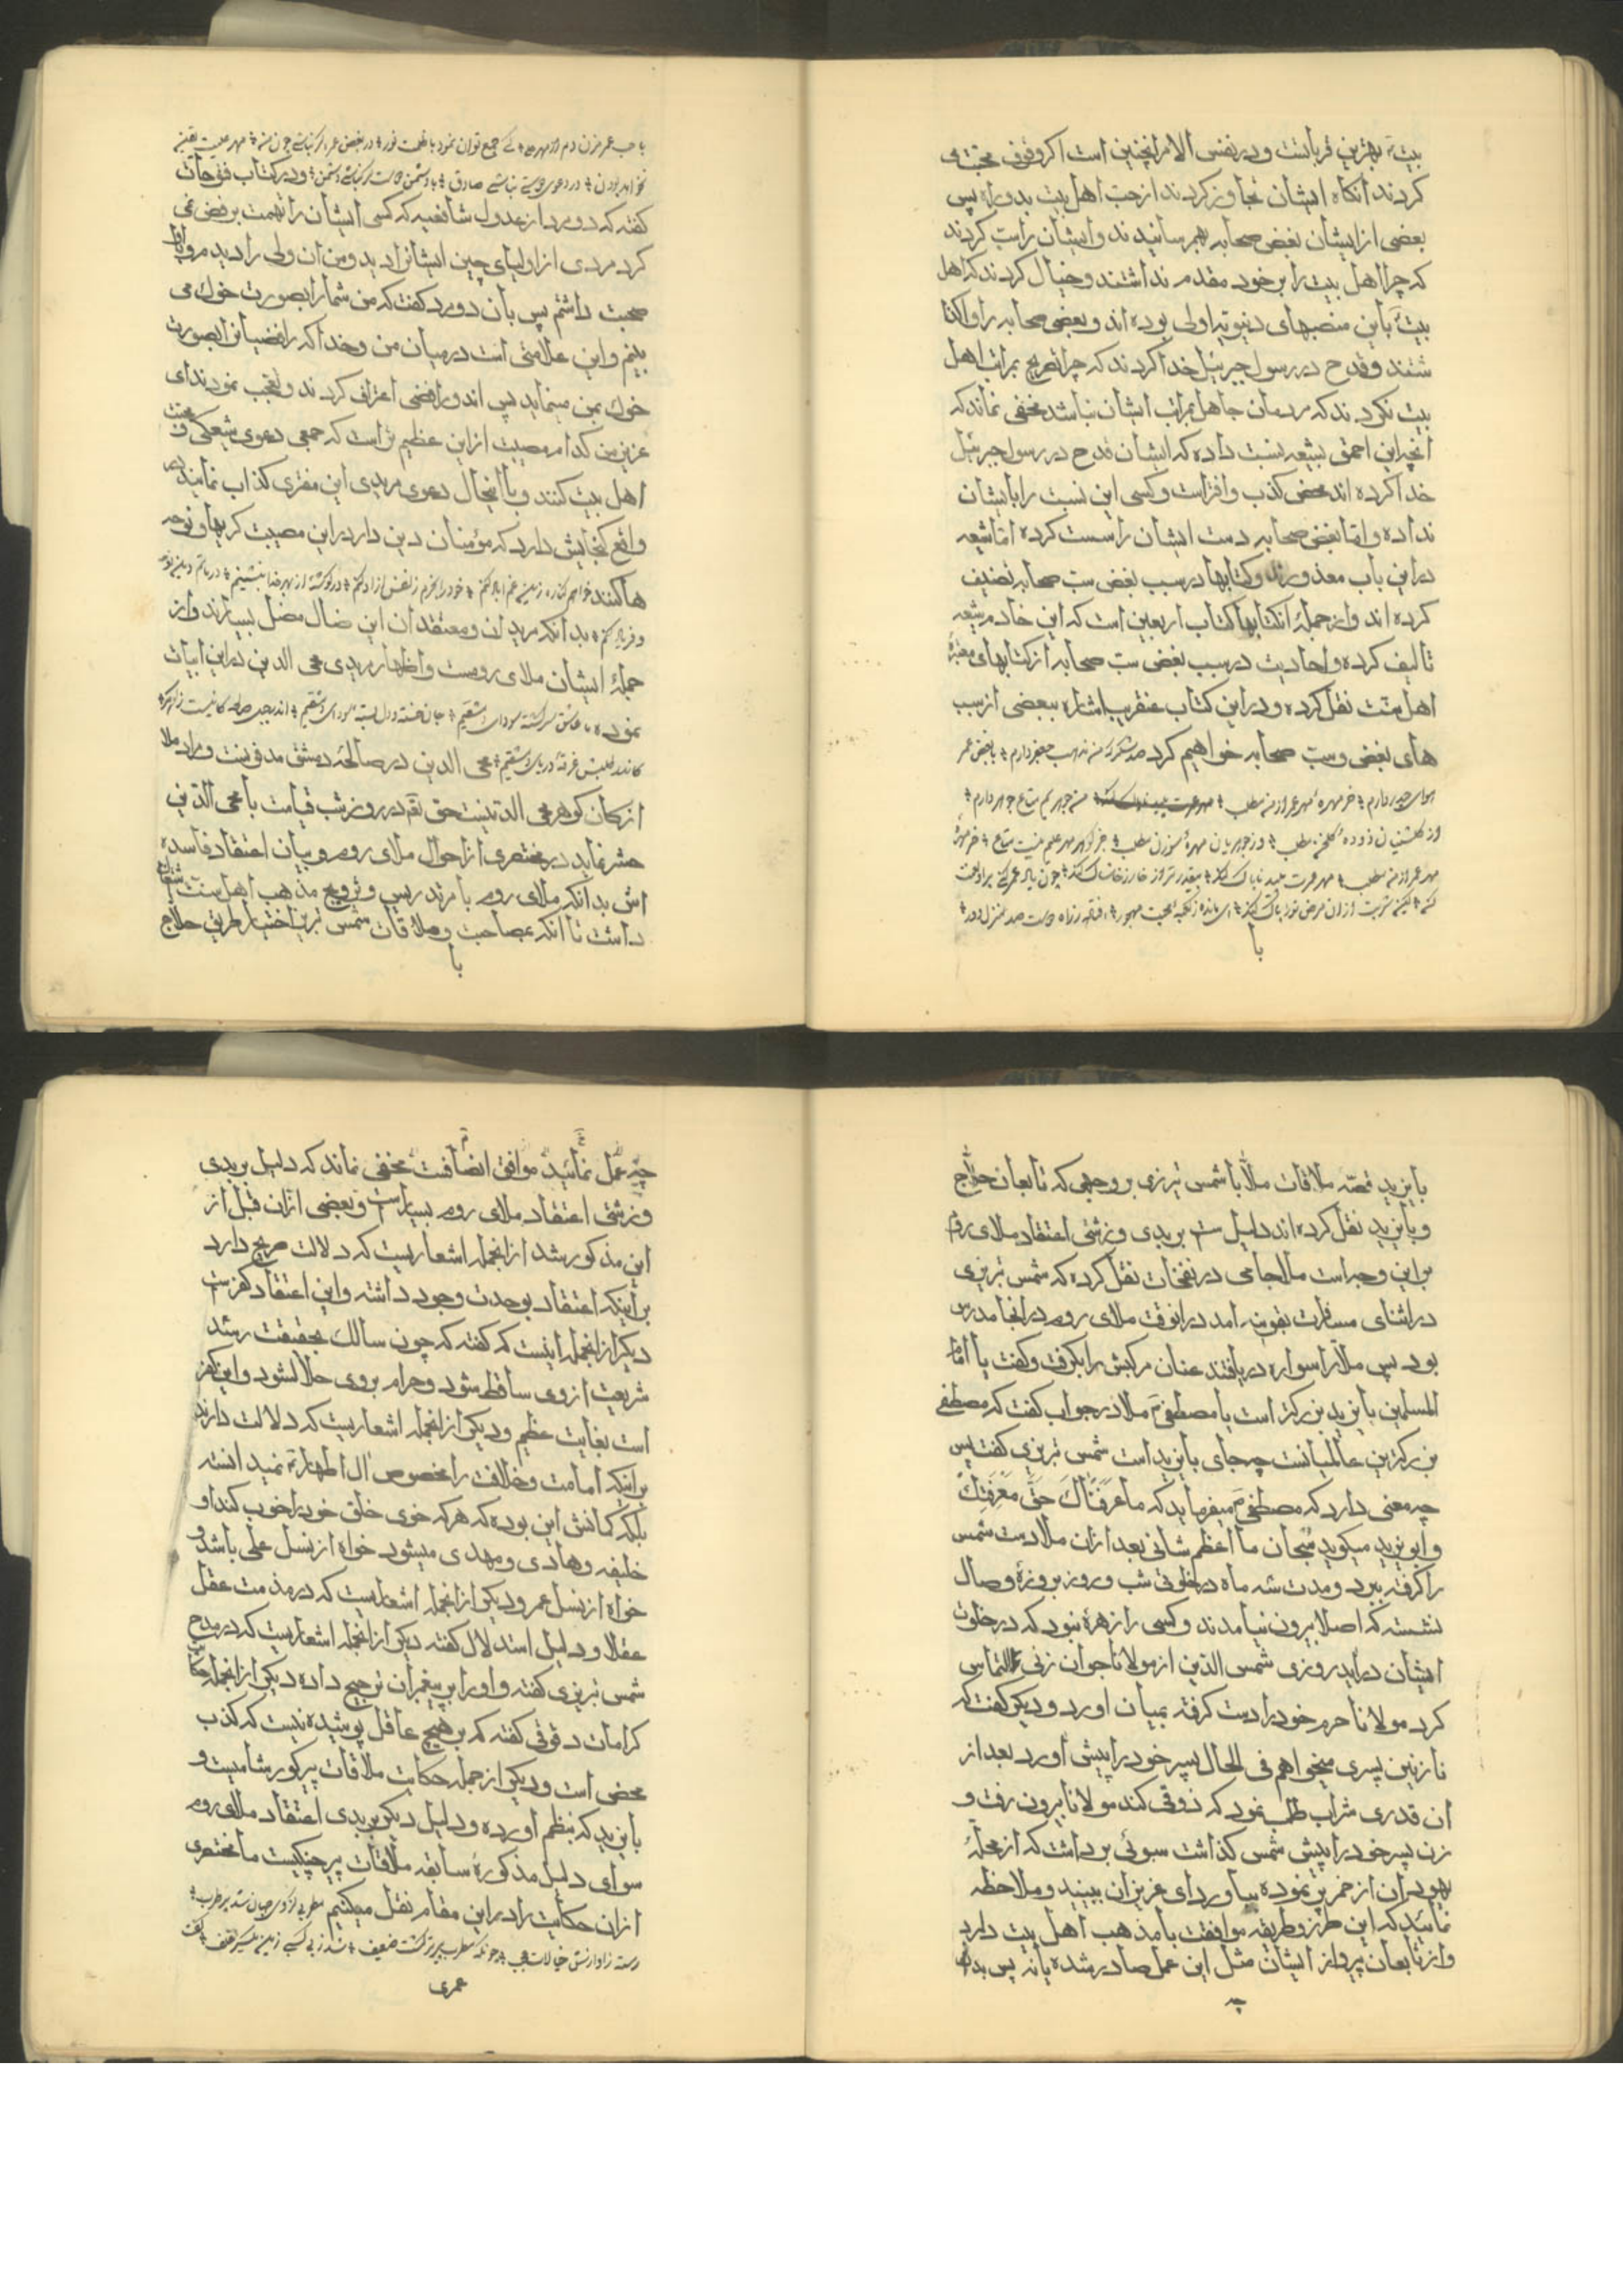 بیت بهترین قرباتست و در نفس الامر اینچنین است اکر وقوف محبت می
کردند انکاه ایشان تجاوز کردند از حب اهل بیت بدو راه پس
بعضی از ایشان بغض صحابه بهم رسانیدند و ایشان را سب کردند
که چرا اهل بیت را بر خود مقدم نداشتند و خیال کردند که اهل
بیت باین منصبهای دنیویه اولی بوده اند و بعضی صحابه را
شتند و قدح در رسول جبرئیل خدا کردند که چرا تصریح بمراتب اهل
بیت نکردند که مردمان جاهل بمراتب ایشان نباشند مخفی نماند که
انچه این احمق بشیعه نسبت داده که ایشان قدح در رسول جبرئیل
خدا کرده اند محض کذب و افتراست و کسی این نسبت را بایشان
نداده و اما بغض صحابه دست ایشان راست کرده اما شیعه
در این باب معذورند و کتابها در سبب بغض سب صحابه تصنیف
کرده اند و از جمله انکتابها کتاب اربعین است که این خادم شیعه
تالیف کرده و احادیث در سبب بغض سب صحابه از کتابهای معتبره
اهل سنت نقل کرده و در این کتاب عنقریب اشاره ببعضی از سبب
های بغض و سب صحابه خواهیم کرد صد شکر که من مذهب جعفر دارم با بغض عمر
هوای حیدر دارم خر مهره مهر عمر از من مطلب من جوهریم متاع جوهر دارم
مهر عمر از من مطلب
با
با حب عمر مزن دم از مهر علی کی جمع توان نمود با ظلمت نور
در دعوی دوستی نباشی صادق با دشمن دوست گر نباشی دشمن و در کتاب فتوحات
کفته که دو مرد از عدول شافعیه که کسی ایشان را تهمت برفض نمی
کرد مردی از اولیای چین ایشانرا دید و من ان ولی را دیدم و با او
صحبت داشتم پس بان دو مرد کفت که من شما را بصورت خوک می
بینم و این علامتی است در میان من و خدا که رافضیانرا بصورت
خوک بمن مینماید پس اندو رافضی اعتراف کردند و تعجب نمودند ای
عزیز من کدام مصیبت از این عظیم تر است که جمعی دعوی شیعکی و محبت
اهل بیت کنند و با اینحال دعوی مریدی این مفتری کذاب نمایند در
واقع کنجایش دارد که مؤمنان دین دار در این مصیبت کریها و نوحه
ها کنند
بدانکه مریدان و معتقدان این ضال مضل بسیارند و از
جمله ایشان ملای رومست و اظهار مریدی محی الدین در این ابیات
نموده ما عاشق سرکشته سودای دمشقیم جان خسته و دل بسته سودای دمشقیم
محی الدین در صالحه دمشق مدفونست و مراد ملا
از کان کوهر محی الدینست حق تع در روز شب قیامت با محی الدین
حشر نماید در مختصری از احوال ملای روم و بیان اعتقاد فاسده
اش بدانکه ملای روم بامر تدریس و ترویج مذهب اهل سنت اشتغال
داشت تا انکه بمصاحبت و ملاقات شمس تبریز اختیار طریق حلاج
با
بایزید قصه ملاقات ملا با شمس تبریزی بر وجهی که تابعان حلاج
و بایزید نقل کرده اند دلیل ست بر بدی و زشتی اعتقاد ملای روم
بر این وجه است ملا جامی در نفحات نقل کرده که شمس تبریزی
در اثنای مسافرت بقونیه امد در انوقت ملای روم در انجا مدرس
بود پس ملا را سواره دریافتند عنان مرکبش را بکرفت و کفت یا امام
المسلمین بایزید بزرکتر است یا مصطفی ص ملا در جواب کفت که مصطفی
بزرکترین عالمیانست چه جای بایزید است شمس تبریزی کفت پس
چه معنی دارد که مصطفی ص میفرماید که ما عَرَفناکَ حَقَّ مَعرِفَتِکَ
و ابو یزید میکوید سبحان ما اعظم شانی بعد ازان ملا دست شمس
را کرفته ببرد و مدت سه ماه در خلوتی شب و روز بروزه وصال
نشسته که اصلا بیرون نیامدند و کسی را زهره نبود که در خلوت
ایشان دراید روزی شمس الدین از مولانا جوان زنی التماس
کرد مولانا حرم خود را دست کرفته بمیان اورد و دیکر کفت که
نازنین پسری میخواهم فی الحال پسر خود را پیش اورد بعد از
ان قدری شراب طلب نمود که ذوقی کند مولانا بیرون رفت و
زن پسر خود را پیش شمس کذاشت سبوئی برداشت که از محله
یهودان از خمر پر نموده بیاورد ای عزیزان ببینید و ملاحظه
نمائید که این طرز و طریقه موافقت با مذهب اهل بیت دارد
و از تابعان پرواز ایشان مثل این عمل صادر شده یا نه پس بدا
چه
چه عمل نمائید موافق انصافت مخفی نماند که دلیل بر بدی
و زشتی اعتقاد ملای روم بسیار است و بعضی ازان قبل از
این مذکور شد از انجمله اشعاریست که دلالت صریح دارد
بر اینکه اعتقاد بوحدت وجود داشته و این اعتقاد کفر ست
دیکر از انجمله اینست که کفته که چون سالک بحقیقت رسد
شریعت از وی ساقط شود و حرام بر وی حلال شود و این کفر
است بغایت عظیم و دیکر از انجمله اشعاریست که دلالت دارند
بر اینکه امامت و خلافت را مخصوص ال اطهار نمیدانسته
بلکه کمانش این بوده که هر که خوی خلق خود را خوب کند او
خلیفه و هادی و مهدی میشود خواه از نسل علی باشد و
خواه از نسل عمر و دیکر از انجمله اشعاریست که در مذمت عقل
عقلا و دلیل استدلال کفته دیکر از انجمله اشعاریست که در مدح
شمس تبریزی کفته و او را بر پیغمبران ترجیح داده دیکر از انجمله حکایت
کرامات دقوقی کفته که بر هیچ عاقل پوشیده نیست که کذب
محض است و دیکر از جمله حکایت ملاقات پیر کور شامیست و
بایزید که بنظم اورده و دلیل دیکر بر بدی اعتقاد ملای روم
سوای دلیل مذکوره سابقه ملاقات پیر چنکیست ما مختصری
ازان حکایت را در این مقام نقل میکنیم مطربی کز وی جهان شد پر طرب
رسته ز اوازش خیالات عجب چونکه مطرب پیرتر کشت و ضعیف شد ز بی کسبی
عمری